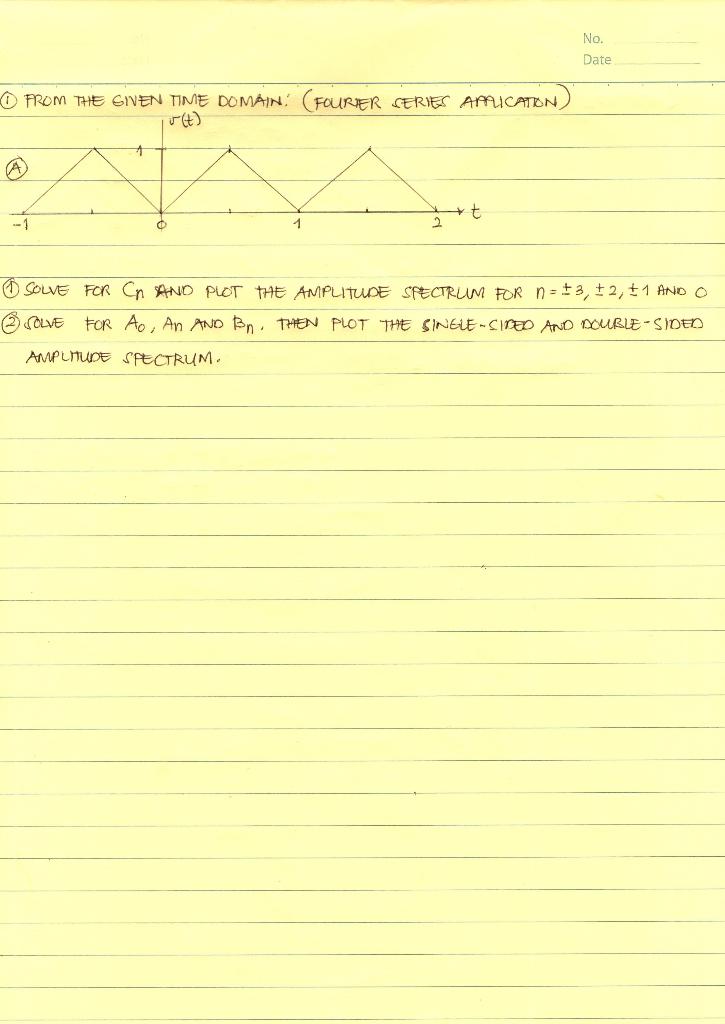 No.
Date
① FROM THE GIVEN TIME DOMAIN: (FOURIER SERIES APPLICATION)
v(t)
1
Ⓐ
-1 0 1 2 t
① SOLVE FOR Cn AND PLOT THE AMPLITUDE SPECTRUM FOR n = ±3, ±2, ±1 AND 0
② SOLVE FOR A0, An AND Bn. THEN PLOT THE SINGLE-SIDED AND DOUBLE-SIDED
AMPLITUDE SPECTRUM.